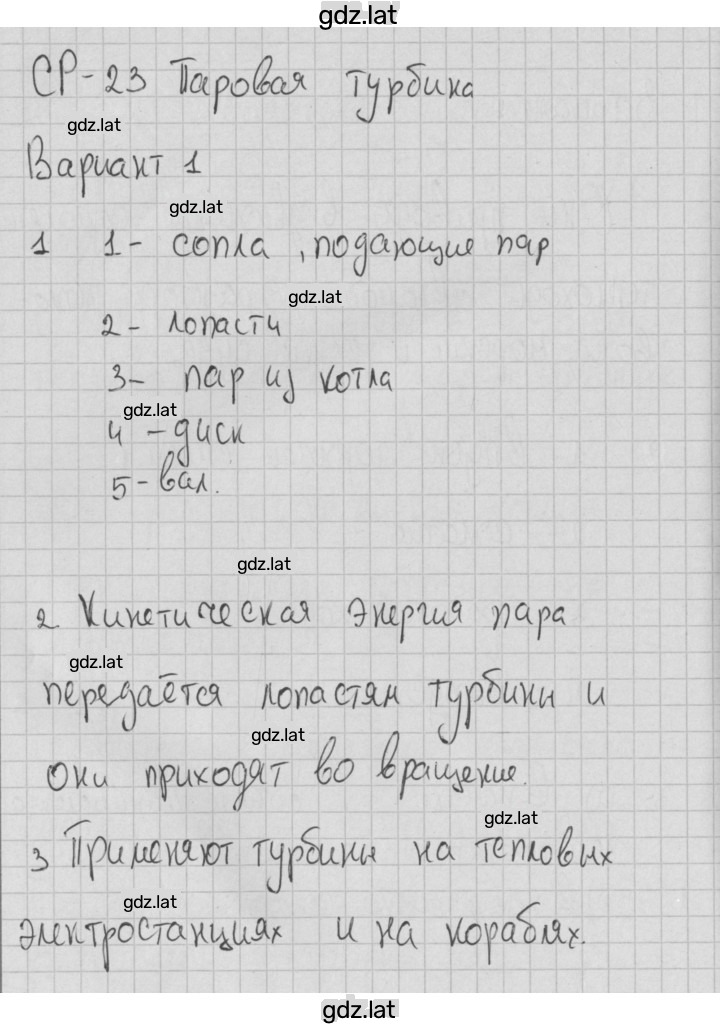 gdz.lat
СР-23 Паровая турбина
gdz.lat
Вариант 1
gdz.lat
1 1- сопла, подающие пар
gdz.lat
2- лопасти
3- пар из котла
gdz.lat
4 - диск
5- вал.
gdz.lat
2 Кинетическая энергия пара
gdz.lat
передаётся лопастям турбины и
gdz.lat
они приходят во вращение.
gdz.lat
3 Применяют турбины на тепловых
gdz.lat
электростанциях и на кораблях.
gdz.lat